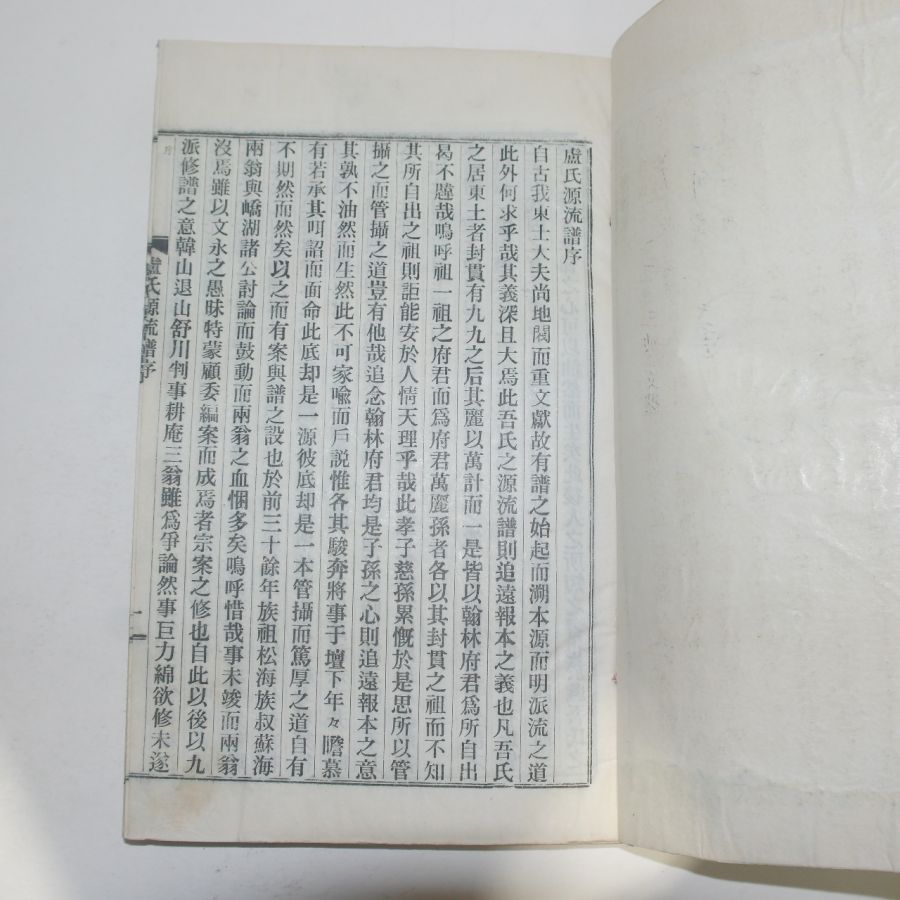 盧氏源流譜序
自古我東士大夫尚地閥而重文獻故有譜之始起而溯本源而明派流之道
此外何求乎哉其義深且大焉此吾氏之源流譜則追遠報本之義也凡吾氏
之居東土者封貫有九九之后其麗以萬計而一是皆以翰林府君爲所自出
曷不韙哉嗚呼祖一祖之府君而爲府君萬麗孫者各以其封貫之祖而不知
其所自出之祖則詎能安於人情天理乎哉此孝子慈孫累慨於是思所以管
攝之而管攝之道豈有他哉追念翰林府君均是子孫之心則追遠報本之意
其孰不油然而生然此不可家喩而戶説惟各其駿奔將事于壇下年々瞻慕
有若承其叫詔而面命此底却是一源彼底却是一本管攝而篤厚之道自有
不期然而然矣以之而有案與譜之設也於前三十餘年族祖松海族叔蘇海
兩翁與嶠湖諸公討論而鼓動而兩翁之血悃多矣嗚呼惜哉事未竣而兩翁
沒焉雖以文永之愚昧特蒙顧委編案而成焉者宗案之修也自此以後以九
派修譜之意韓山退山舒川判事耕庵三翁雖爲爭論然事巨力綿欲修未遂
盧氏源流譜序
一